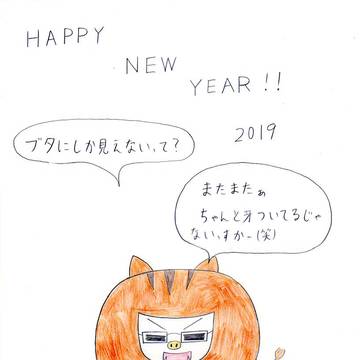 HAPPY
NEW
YEAR!!
2019
ブタにしか見えないって?
またまたぁ
ちゃんと牙ついてるじゃ
ないすかー(笑)